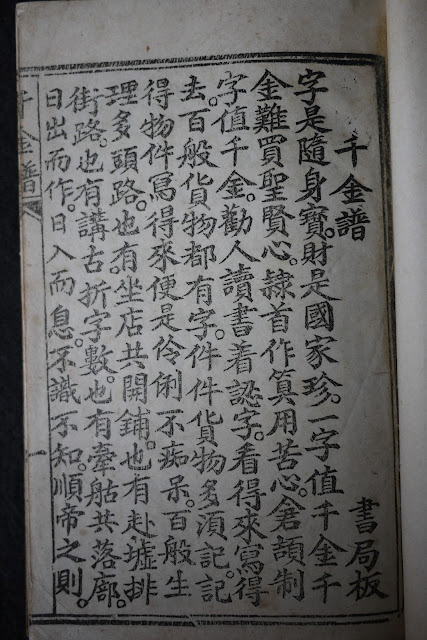 千金譜 書局板
字是隨身寶。財是國家珍。一字值千金千
金難買聖賢心。隸首作筭用苦心。倉頡制
字值千金。勸人讀書着認字。看得來寫得
去。百般貨物都有字。件件貨物多湏記。記
得物件寫得來便是伶俐不痴呆。百般生
理多頭路。也有坐店共開鋪。也有赴墟排
街路。也有講古折字數。也有牽牯共落廍。
日出而作。日入而息。不識不知。順帝之則。
千金譜 一